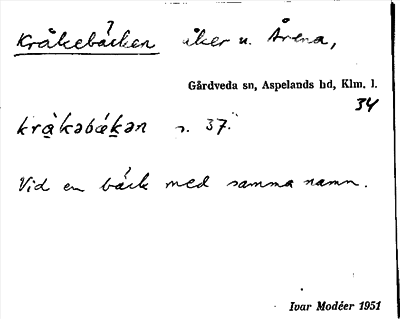 Kråkebäcken åker u. Årena,
Gårdveda sn, Aspelands hd, Klm. l.
34
kråkəbäkən s. 37.
Vid en bäck med samma namn.
Ivar Modéer 1951